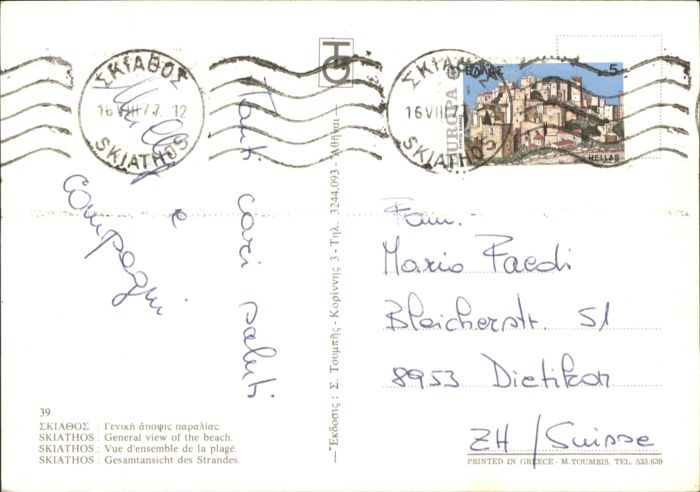 ΣΚΙΑΘΟΣ
16 VIII 77. 12
SKIATHOS
Tanti cari saluti
e
compagni
ΣΚΙΑΘΟΣ
16 VIII
SKIATHOS
EUROPA
ΕΛΛΑΣ
5
HELLAS
Fam.
Mario Faedi
Bleicherstr. 51
8953 Dietikon
ZH/Suisse
Ἔκδοσις: Σ. Τουμπῆς - Κορίννης 3 - Τηλ. 3244.093 - Ἀθῆναι
39
ΣΚΙΑΘΟΣ : Γενικὴ ἄποψις παραλίας.
SKIATHOS : General view of the beach.
SKIATHOS : Vue d'ensemble de la plage.
SKIATHOS : Gesamtansicht des Strandes.
PRINTED IN GREECE - M. TOUMBIS. TEL. 533.639